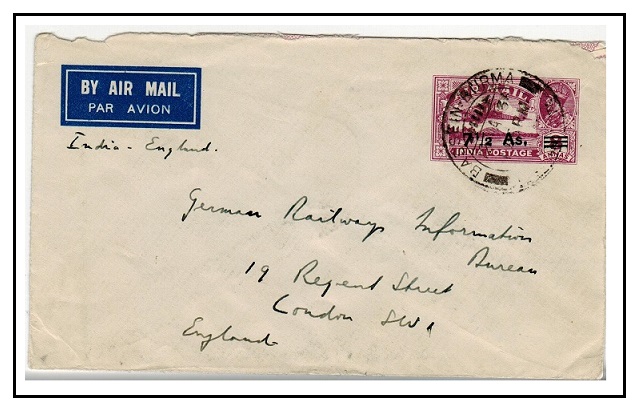 BY AIR MAIL
PAR AVION
India - England.
MAIL
7½ As.
INDIA POSTAGE
8
BASSEIN-BURMA
German Railways Information
Bureau
19 Regent Street
London SW1
England